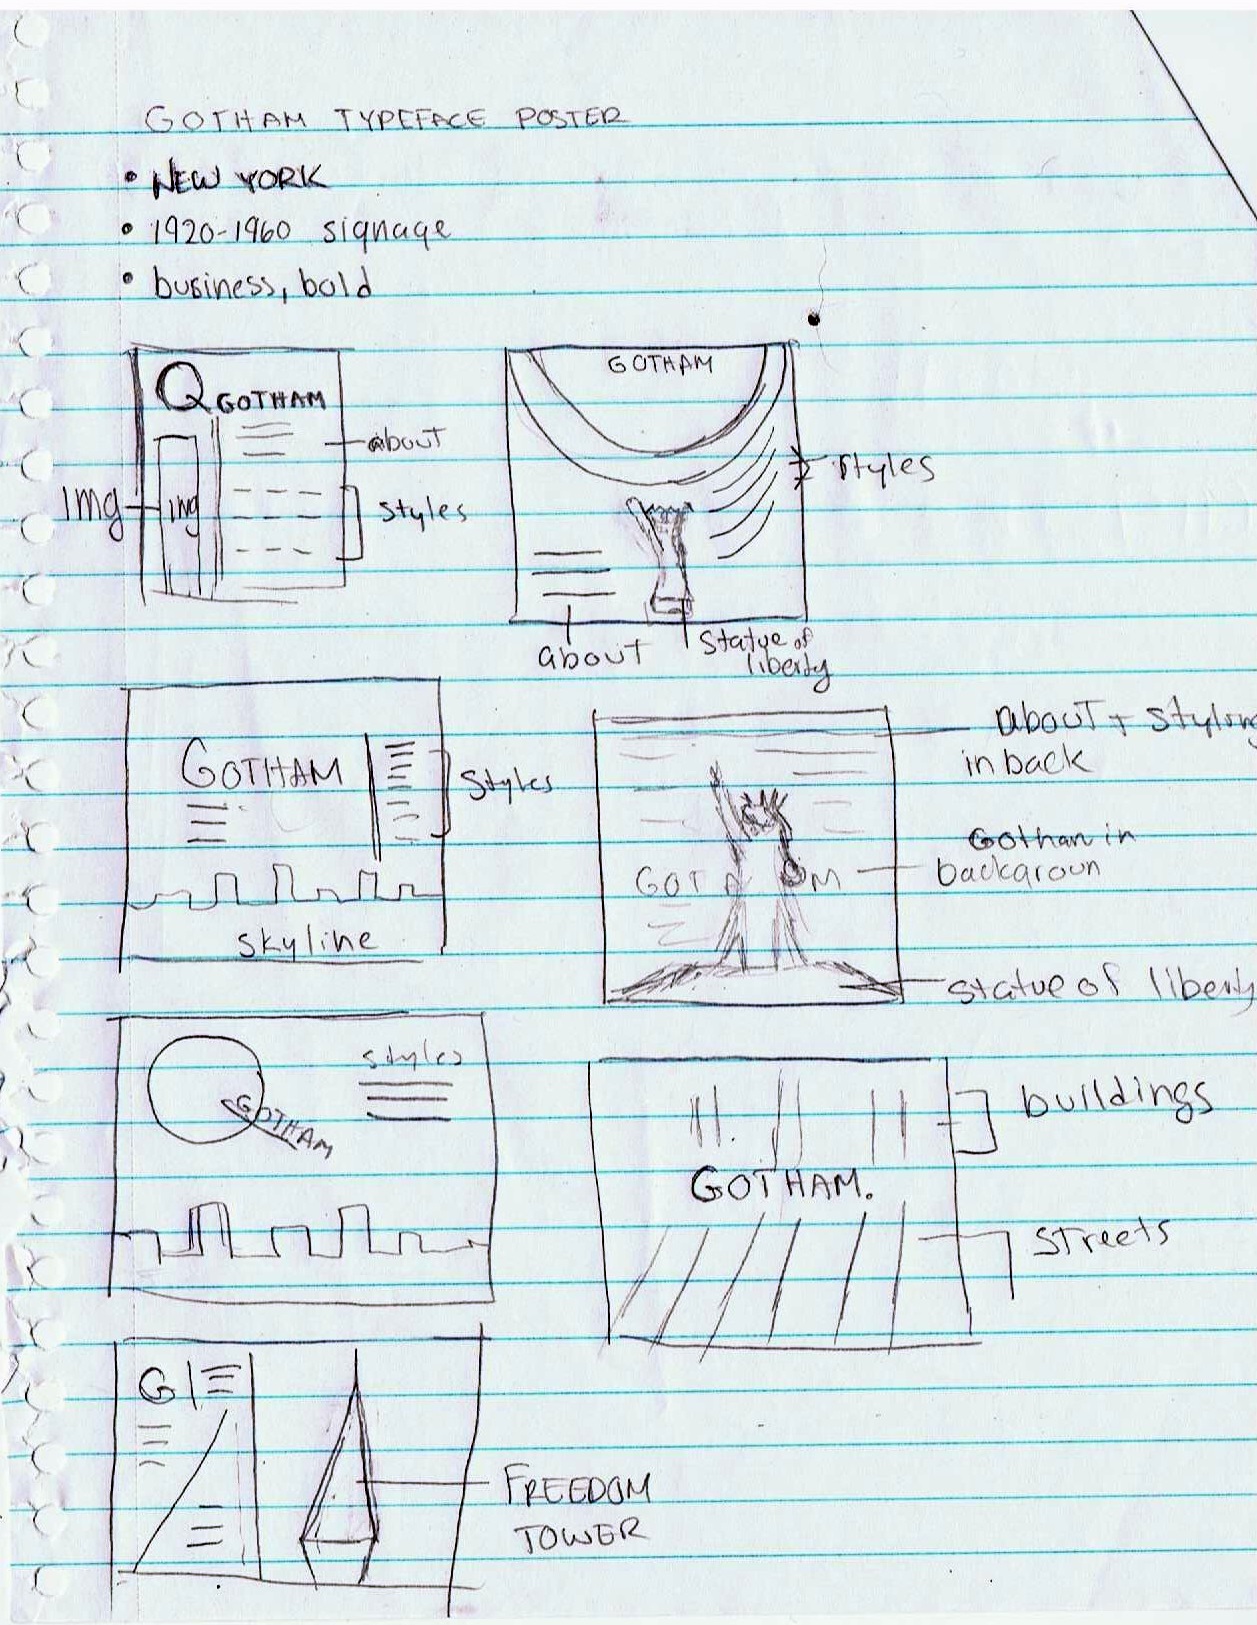 GOTHAM TYPEFACE POSTER
• NEW YORK
• 1920-1960 signage
• business, bold
Q GOTHAM
about
img
img
styles
GOTHAM
styles
about
statue of
liberty
GOTHAM
styles
skyline
about + styling
in back
Gothan in
backgroun
GOTA M
statue of liberty
Q
GOTHAM
styles
buildings
GOTHAM.
streets
G
FREEDOM
TOWER